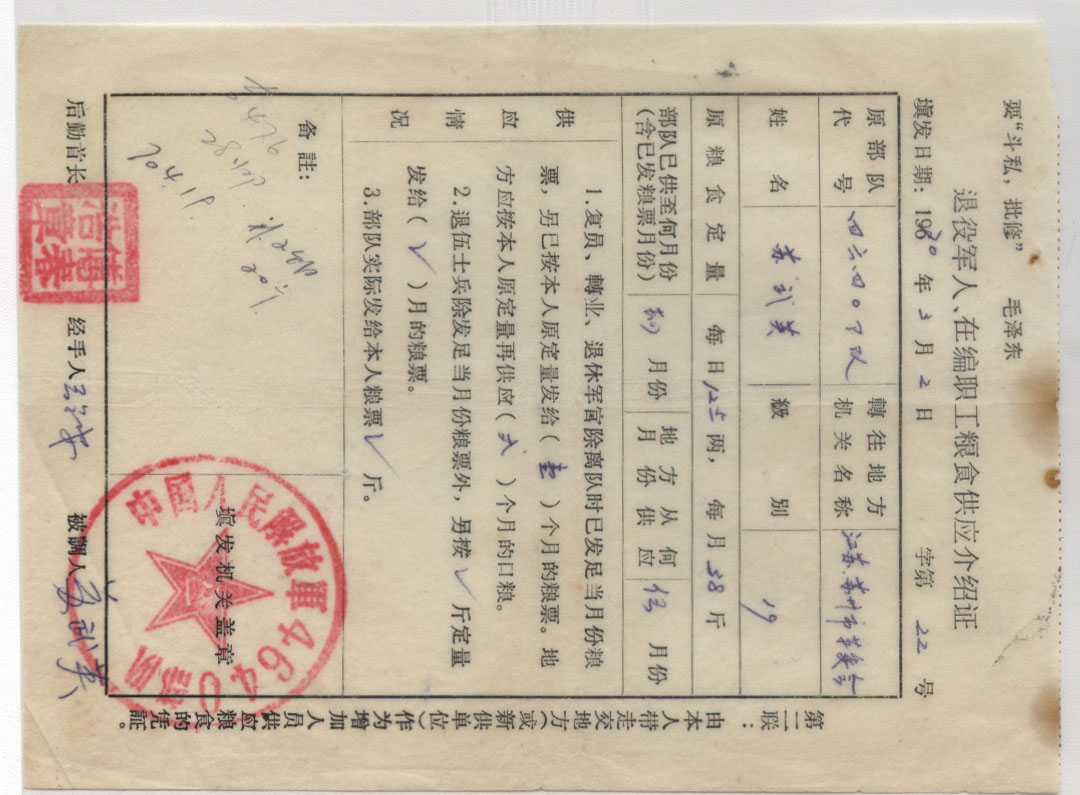 要“斗私，批修” 毛泽东
退役军人、在编职工粮食供应介绍证
填发日期：1970年3月2日 字第 22 号
原部队代号 四六四〇部队 轉往地方机关名称 江苏苏州市革委会
姓名 苏武英 級别 19
原粮食定量 每日1.25两，每月38斤
部队已供至何月份（含已发粮票月份） 月份 地方从何月份供应 伍 月份
供应情况
1.复员、轉业、退休军官除离队时已发足当月份粮
票，另已按本人原定量发给（ 壱 ）个月的粮票。地
方应按本人原定量再供应（ 弍 ）个月的口粮。
2.退伍士兵除发足当月份粮票外，另按 ✓ 斤定量
发给（ ✓ ）月的粮票。
3.部队实际发给本人粮票 ✓ 斤。
备註：
填发机关盖章
中國人民解放軍4640部隊
后勤首长 经手人 被調人 苏武英
第二联：由本人带走交地方（或）新供单位作为增加人员供应粮食的凭証。